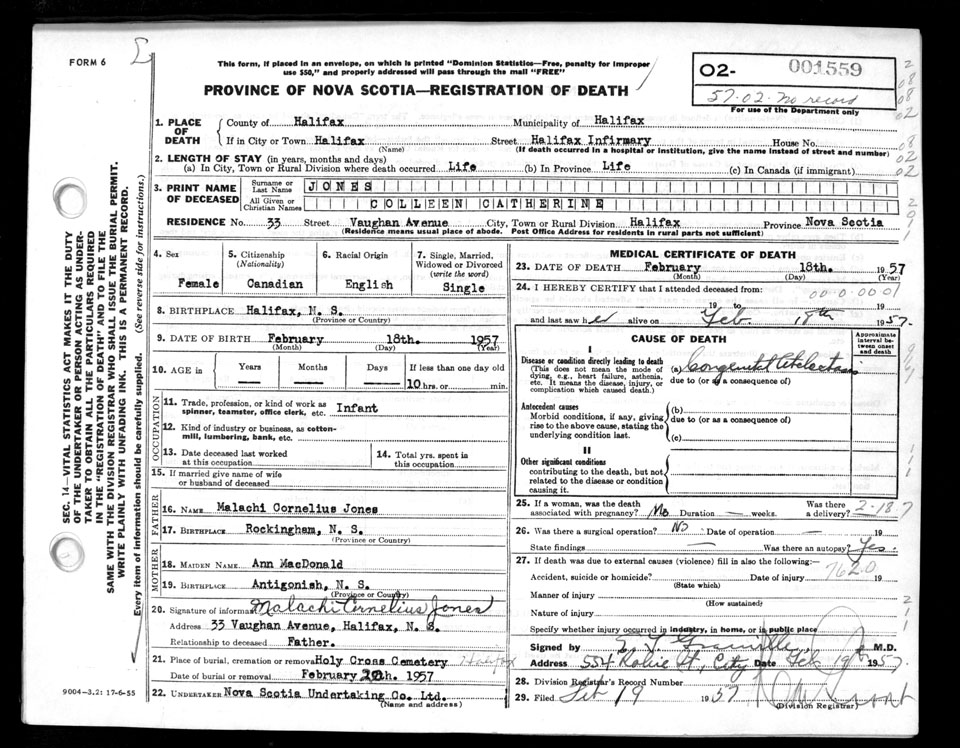 FORM 6
This form, if placed in an envelope, on which is printed "Dominion Statistics—Free, penalty for improper
use $50," and properly addressed will pass through the mail "FREE"
PROVINCE OF NOVA SCOTIA—REGISTRATION OF DEATH
02- 001559
57-02- No record
For use of the Department only
1. PLACE OF DEATH
County of Halifax Municipality of Halifax
If in City or Town Halifax Street Halifax Infirmary House No.
(Name) (If death occurred in a hospital or institution, give the name instead of street and number)
2. LENGTH OF STAY (in years, months and days)
(a) In City, Town or Rural Division where death occurred Life (b) In Province Life (c) In Canada (if immigrant)
3. PRINT NAME OF DECEASED
Surname or Last Name JONES
All Given or Christian Names COLLEEN CATHERINE
RESIDENCE No. 33 Street Vaughan Avenue City, Town or Rural Division Halifax Province Nova Scotia
(Residence means usual place of abode. Post Office Address for residents in rural parts not sufficient)
4. Sex
Female
5. Citizenship
(Nationality)
Canadian
6. Racial Origin
English
7. Single, Married,
Widowed or Divorced
(write the word)
Single
8. BIRTHPLACE Halifax, N. S.
(Province or Country)
9. DATE OF BIRTH February 18th. 1957
(Month) (Day) (Year)
10. AGE in Years Months Days If less than one day old
10 hrs. or min.
OCCUPATION
11. Trade, profession, or kind of work as
spinner, teamster, office clerk, etc. Infant
12. Kind of industry or business, as cotton-
mill, lumbering, bank, etc.
13. Date deceased last worked
at this occupation
14. Total yrs. spent in
this occupation
15. If married give name of wife
or husband of deceased
FATHER
16. NAME Malachi Cornelius Jones
17. BIRTHPLACE Rockingham, N. S.
(Province or Country)
MOTHER
18. MAIDEN NAME Ann MacDonald
19. BIRTHPLACE Antigonish, N. S.
(Province or Country)
20. Signature of informant Malachi Cornelius Jones
Address 33 Vaughan Avenue, Halifax, N. S.
Relationship to deceased Father.
21. Place of burial, cremation or removal Holy Cross Cemetery Halifax
Date of burial or removal February 20th. 1957
22. UNDERTAKER Nova Scotia Undertaking Co. Ltd.
(Name and address)
MEDICAL CERTIFICATE OF DEATH
23. DATE OF DEATH February 18th. 1957
(Month) (Day) (Year)
24. I HEREBY CERTIFY that I attended deceased from:
19 to 19
and last saw her alive on Feb. 18th 1957.
CAUSE OF DEATH
Approximate
interval be-
tween onset
and death
I
Disease or condition directly leading to death
(This does not mean the mode of
dying, e.g., heart failure, asthenia,
etc. It means the disease, injury, or
complication which caused death.)
(a) Congenital Atelectasis
due to (or as a consequence of)
Antecedent causes
Morbid conditions, if any, giving
rise to the above cause, stating the
underlying condition last.
(b)
due to (or as a consequence of)
(c)
II
Other significant conditions
contributing to the death, but not
related to the disease or condition
causing it.
25. If a woman, was the death
associated with pregnancy? No Duration — weeks. Was there
a delivery? 2-18-7
26. Was there a surgical operation? No Date of operation — 19
State findings — Was there an autopsy? Yes.
27. If death was due to external causes (violence) fill in also the following:
7620
Accident, suicide or homicide? Date of injury 19
(State which)
Manner of injury
(How sustained)
Nature of injury
Specify whether injury occurred in industry, in home, or in public place
Signed by M.D.
Address 554 Robie St, City Date Feb 19 1957.
28. Division Registrar's Record Number
29. Filed Feb 19 1957
(Division Registrar)
SEC. 14—VITAL STATISTICS ACT MAKES IT THE DUTY
OF THE UNDERTAKER OR PERSON ACTING AS UNDER-
TAKER TO OBTAIN ALL THE PARTICULARS REQUIRED
IN THE "REGISTRATION OF DEATH" AND TO FILE THE
SAME WITH THE DIVISION REGISTRAR WHO SHALL ISSUE THE BURIAL PERMIT.
WRITE PLAINLY WITH UNFADING INK. THIS IS A PERMANENT RECORD.
Every item of information should be carefully supplied. (See reverse side for instructions.)
9004-3.2: 17-6-55